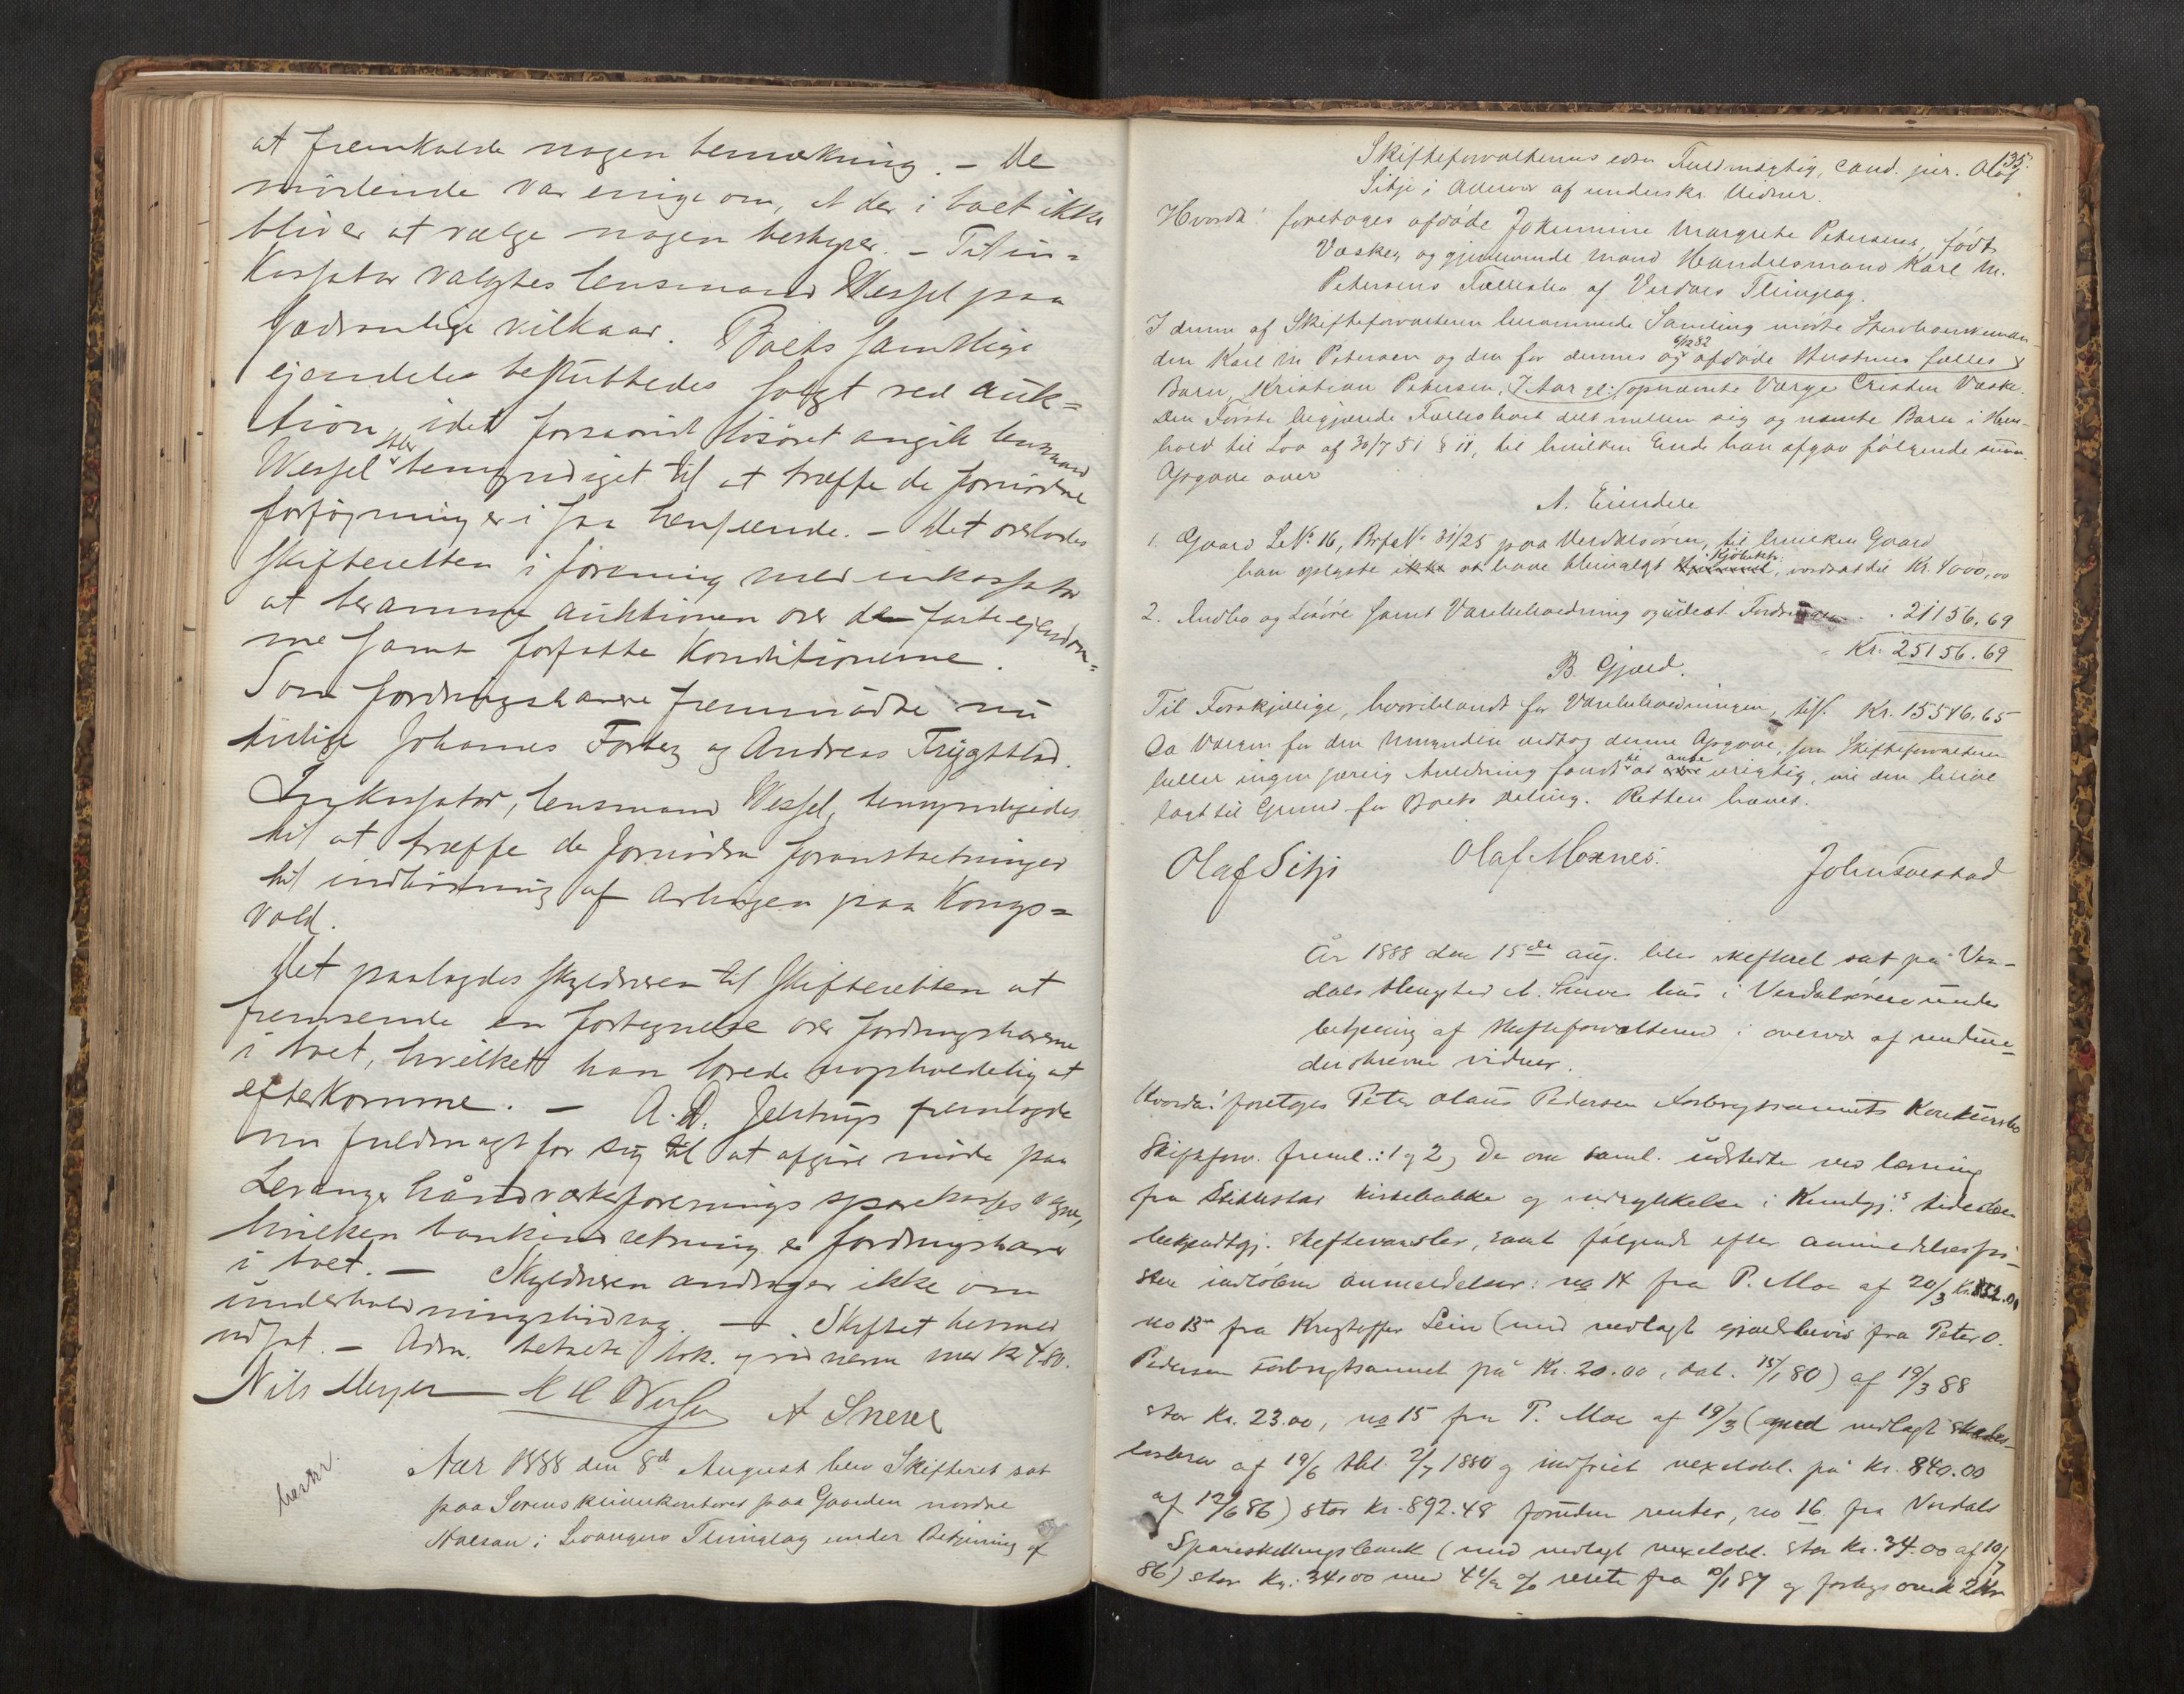 at fremkalde nogen bemærkning. – De
mödende var enige om, at der i boet ikke
bliver at vælge nogen bestyrer. – Til in=
kassator valgtes lensmand Wessel paa
sædvanlige vilkaar. Boets samtlige
ejendele besluttedes solgt ved auk=
tion, idet forsaavidt lösöret angik lensmand
Wessel blev bemyndiget til at træffe de fornödne
forföininger i saa henseende. – Det overlodes
skifteretten i forening med inkassator
at beramme auktionen over de faste ejendom=
me samt forfatte Konditionerne.
Som fordringshavere fremmödte nu
tillige Johannes Forbeg og Andreas Tryggstad.
Inkassator, lensmand Wessel, bemyndigedes
til at træffe de fornödne foranstaltninger
til indbördning af avlingen paa Kongs=
vold.
Det paalagdes skyldneren til skifteretten at
fremsende en fortegnelse over fordringshaverne
i boet, hvilket han lovede uopholdelig at
efterkomme. – A. D. Jelstrup fremlagde
nu fuldmagt for sig til at afgive möde paa
Levanger håndværkerforenings sparekasses vegne,
hvilken bankindretning er fordringshaver
i boet. – Skyldneren andrager ikke om
underholdningsbidrag. – Skiftet hermed
udsat. – Adm. betalte lsk. og vidnerne med kr 4.80.
Nils Meyer H H Wessel A Snerel
beskr.
Aar 1888 den 8d August blev Skifteret sat
paa Sorenskriverkontoret paa Gaarden nordre
Halsan i Levangers Thinglag under Betjening af
135.
Skifteforvalterens edsv. Fuldmægtig, cand. jur. Olaf
Sitje i Overvær af underskr. Vidner.
Hvorda: foretoges afdöde Jokumine Margrete Petersens, födt
Væske, og gjenlevende Mand Handelsmand Karl M.
Petersens Fællesbo af Verdals Thinglag.
I denne af Skifteforvalteren berammede Samling mödte Sterbboenkeman-
den Karl M Petersen og den for dennes og 6/12 82 afdöde Hustrues fælles
Barn, Kristian Petersen, 7 Aar gl. opnævnte Værge Cristen Væske.
Den Förste begjærede Fællesboet delt mellem sig og nævnte Barn i Hen-
hold til Lov af 30/7 51 § 11, til hvilken Ende han afgav fölgende summ.
Opgave over
A. Eiendele
1. Gaard L.No 16, BrfaNo 31/25 paa Verdalsören, til hvilken Gaard
han oplyste ikke at have thinglæst Kjöbekt., værdsat til Kr. 4000,00
2. Indbo og Lösöre samt Varebeholdning og udest. Fordringer . . 21156,69
Kr. 25156.69
B. Gjæld.
Til Forskjellige, hvoriblandt for Varebeholdningen, tils. Kr. 15546.65
Da Værgen for den Umyndige vedtog denne Opgave, som Skifteforvalteren
heller ingen særlig Anledning fandt til at anse urigtig, vil den blive
lagt til Grund for Boets Deling. Retten hævet.
Olaf Sitje Olaf Moxnes. John Tuestad
År 1888 den 15de aug. blev skifteret sat på Ver-
dals thingsted A. Huses hus i Verdalsören under
betjening af skifteforvalteren i overvær af undere-
derskrevne vidner.
Hvorda: foretoges Peter Olaus Pedersen Forbregtsaunets Konkursbo
Skifteforv. freml.: 1 og 2, De om saml. udstedte ved læsning
fra Stiklestad kirkebakke og indrykkelse i Kundgj.s tidende
bekjendtgj. skiftevarsler, samt fölgende efter anmeldelsesfri-
sten indlöbne anmeldelser: no 14 fra P. Moe af 20/3 Kr. 832.00
no 13a fra Kristoffer Lein (med vedlagt gjældsbevis fra Peter O.
Pedersen Forbregtsaunet på Kr. 20.00, dat. 15/1 80) af 19/3 88
stor Kr. 23.00, no 15 fra P. Moe af 19/3 (med vedlagt skades-
lösbrev af 19/6 thl. 2/7 1880 og indfriet vexelobl. på Kr. 840.00
af 12/6 86) stor Kr. 892.48 foruden renter, no 16 fra Verdals
Spareskillingsbank (med vedlagt vexelobl. stor Kr. 34.00 af 10/7
86) stor Kr. 34,00 med 4½ % rente fra 10/1 87 og forlegsomk 2 Kr